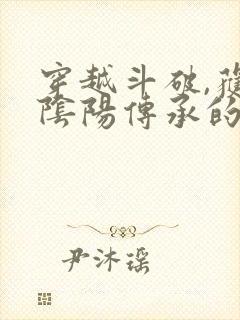 穿越斗破,獲
陰陽傳承的
尹沐瑶